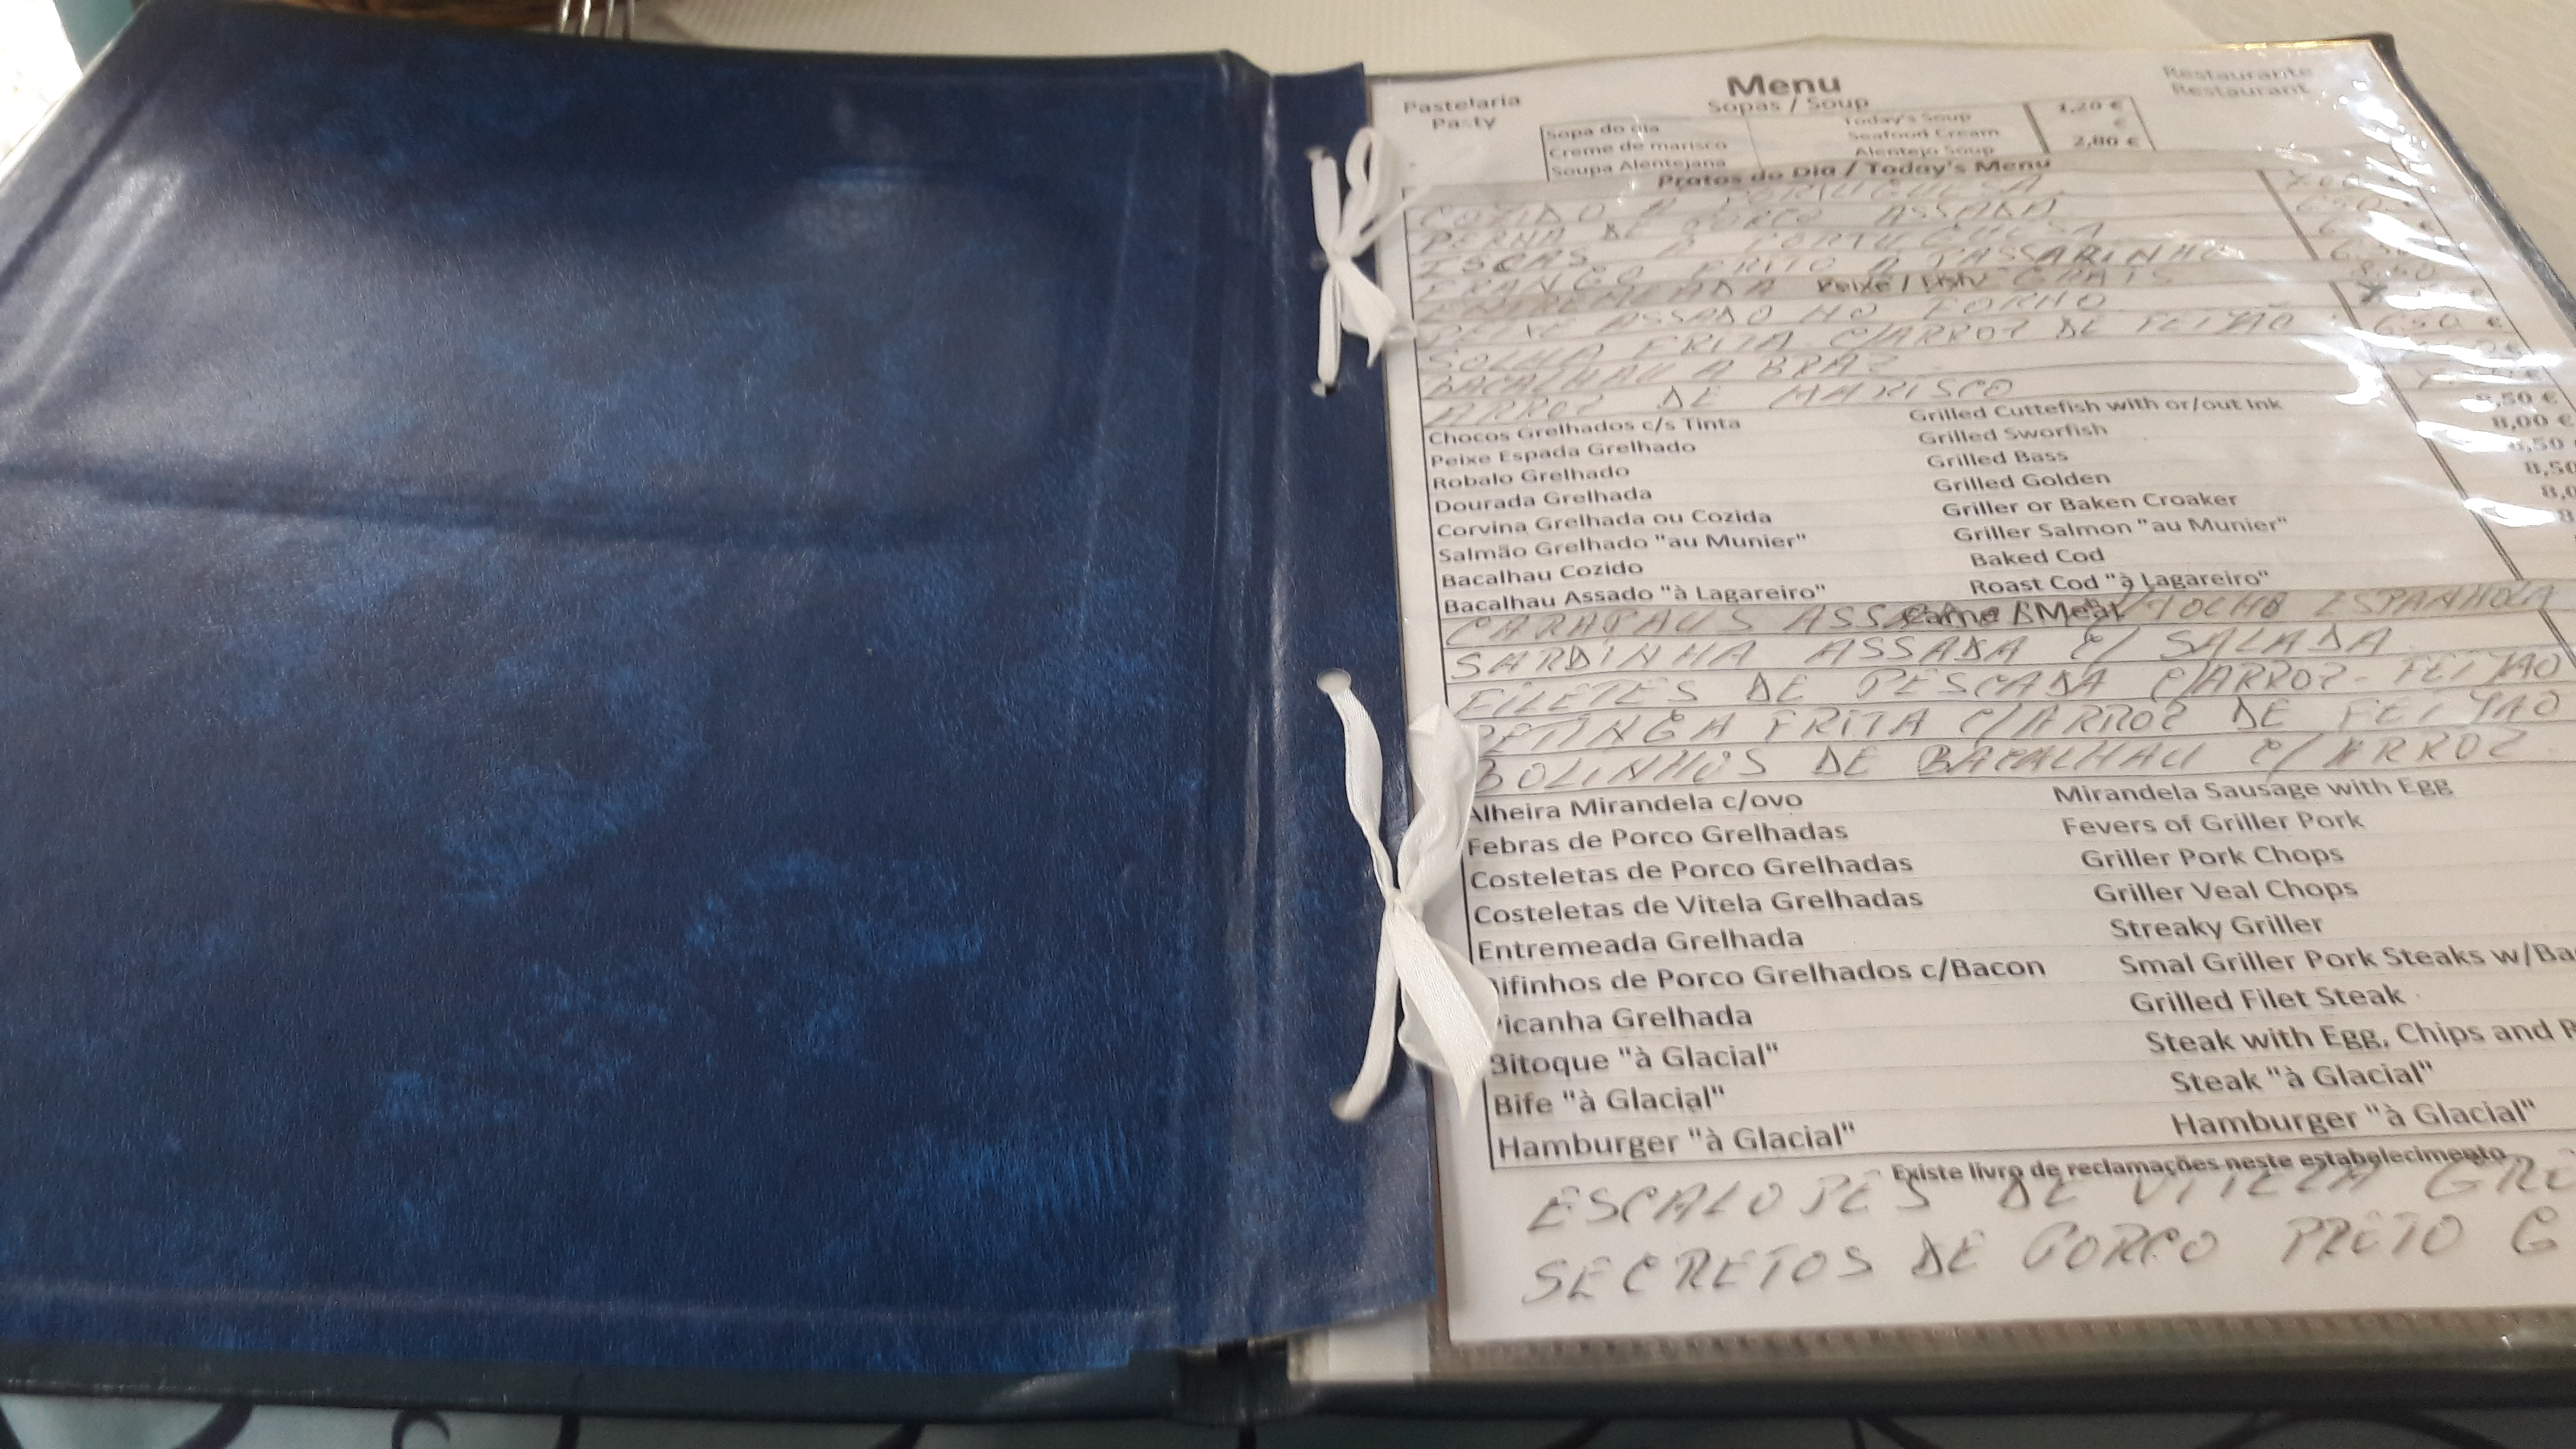 Menu
Pastelaria
Pasty
Restaurante
Restaurant
Sopas / Soup
Sopa do dia Today's Soup 1,20 €
Creme de marisco Seafood Cream €
Soupa Alentejana Alentejo Soup 2,80 €
Pratos do Dia / Today's Menu
COZIDO A PORTUGUESA
PERNA DE PORCO ASSADA
ISCAS A PORTUGUESA
FRANGO FRITO A PASSARINHO
ENTREMEADA GRAIS
Peixe / Fish
PEIXE ASSADO NO FORNO
SOLHA FRITA C/ARROZ DE FEIJÃO 6.50 €
BACALHAU A BRAZ
ARROZ DE MARISCO
Chocos Grelhados c/s Tinta Grilled Cuttefish with or/out Ink 8,50 €
Peixe Espada Grelhado Grilled Sworfish 8,00 €
Robalo Grelhado Grilled Bass
Dourada Grelhada Grilled Golden 8,50
Corvina Grelhada ou Cozida Griller or Baken Croaker
Salmão Grelhado "au Munier" Griller Salmon "au Munier"
Bacalhau Cozido Baked Cod
Bacalhau Assado "à Lagareiro" Roast Cod "à Lagareiro"
Carne / Meat
CARAPAUS ESPANHOLA
SARDINHA ASSADA C/ SALADA
FILETES DE PESCADA C/ARROZ-FEIJAO
PETINGA FRITA C/ARROZ DE FEIJAO
BOLINHOS DE BACALHAU C/ARROZ
Alheira Mirandela c/ovo Mirandela Sausage with Egg
Febras de Porco Grelhadas Fevers of Griller Pork
Costeletas de Porco Grelhadas Griller Pork Chops
Costeletas de Vitela Grelhadas Griller Veal Chops
Entremeada Grelhada Streaky Griller
ifinhos de Porco Grelhados c/Bacon Smal Griller Pork Steaks w/Ba
Picanha Grelhada Grilled Filet Steak
Bitoque "à Glacial" Steak with Egg, Chips and R
Bife "à Glacial" Steak "à Glacial"
Hamburger "à Glacial" Hamburger "à Glacial"
Existe livro de reclamações neste estabelecimento
ESCALOPES DE VITELA GRE
SECRETOS DE PORCO PRETO G